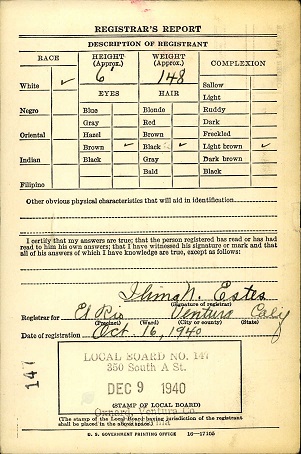 REGISTRAR'S REPORT
DESCRIPTION OF REGISTRANT
RACE HEIGHT (Approx.) WEIGHT (Approx.) COMPLEXION
6' 148
White ✓ Sallow
EYES HAIR Light
Negro Blue Blonde Ruddy
Gray Red Dark
Oriental Hazel Brown Freckled
Brown ✓ Black ✓ Light brown ✓
Indian Black Gray Dark brown
Bald Black
Filipino
Other obvious physical characteristics that will aid in identification
I certify that my answers are true; that the person registered has read or has had
read to him his own answers; that I have witnessed his signature or mark and that
all of his answers of which I have knowledge are true, except as follows:
N. Estes
(Signature of registrar)
Registrar for El Rio Ventura Calif
(Precinct) (Ward) (City or county) (State)
Date of registration Oct. 16, 1940
147
LOCAL BOARD NO. 147
350 South A St.
DEC 9 1940
(STAMP OF LOCAL BOARD)
Oxnard, Ventura Co.
(The stamp of the Local Board having jurisdiction of the registrant
shall be placed in the above space.)
U. S. GOVERNMENT PRINTING OFFICE 16—17105